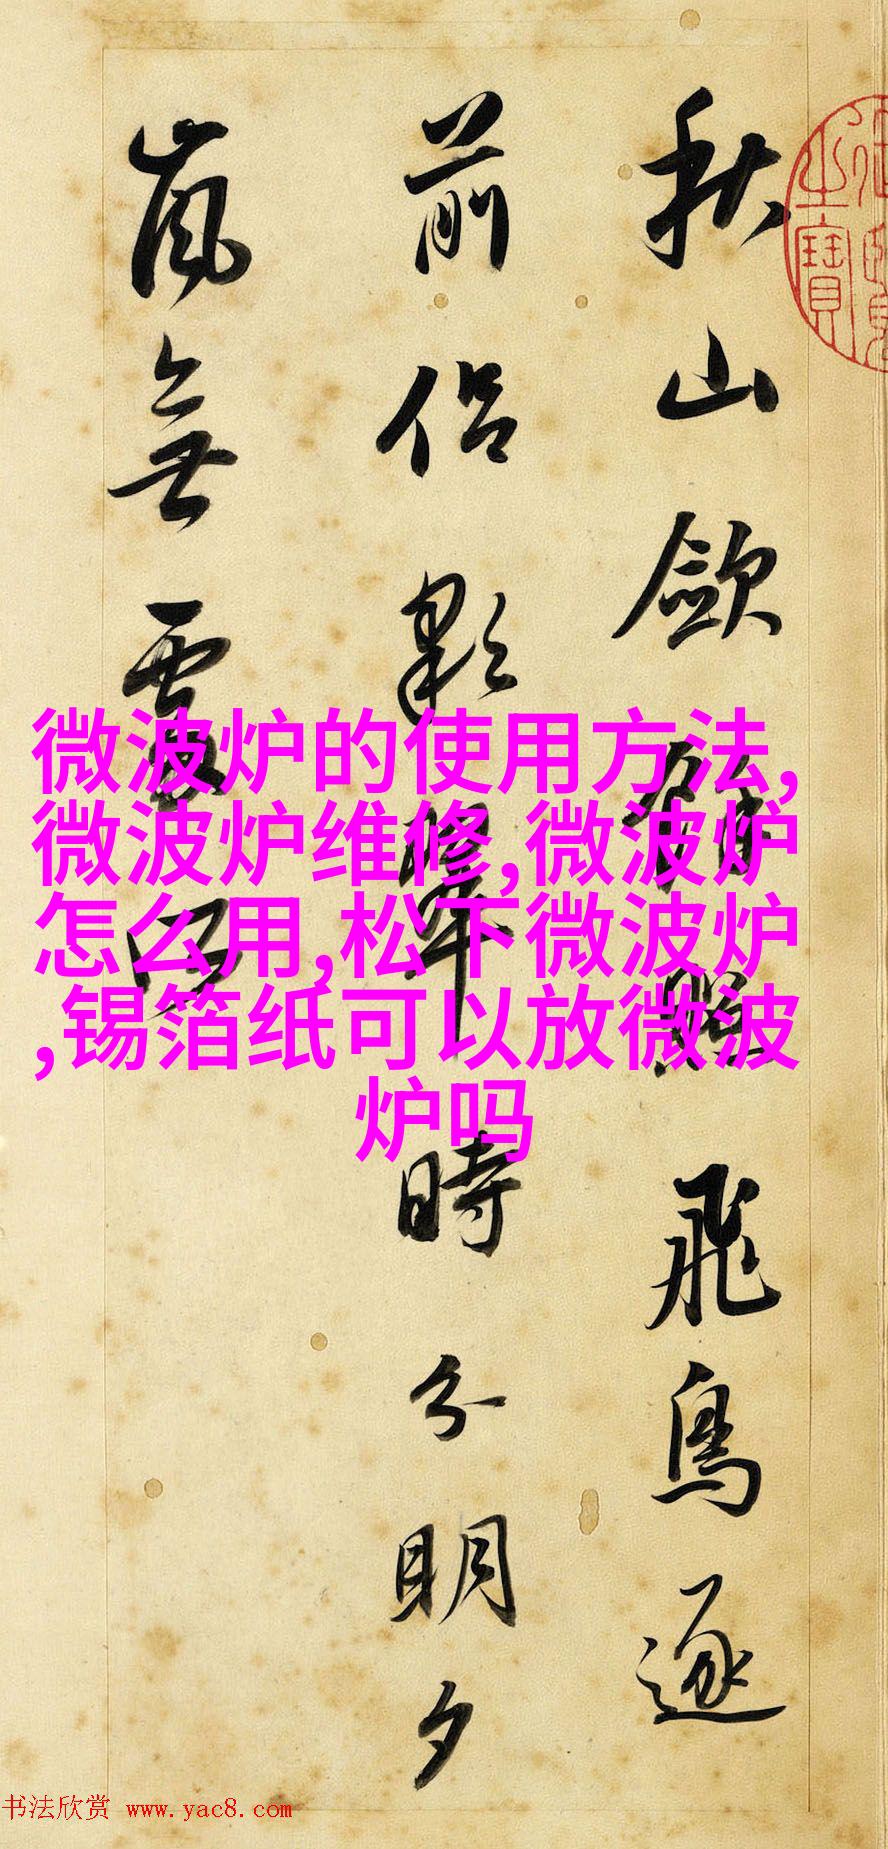 秋山歛餘照飛鳥逐
前侣彩翠時分明夕
嵐無處所
之寶
微波炉的使用方法,
微波炉维修,微波炉
怎么用,松下微波炉
,锡箔纸可以放微波
炉吗
书法欣赏 www.yac8.com